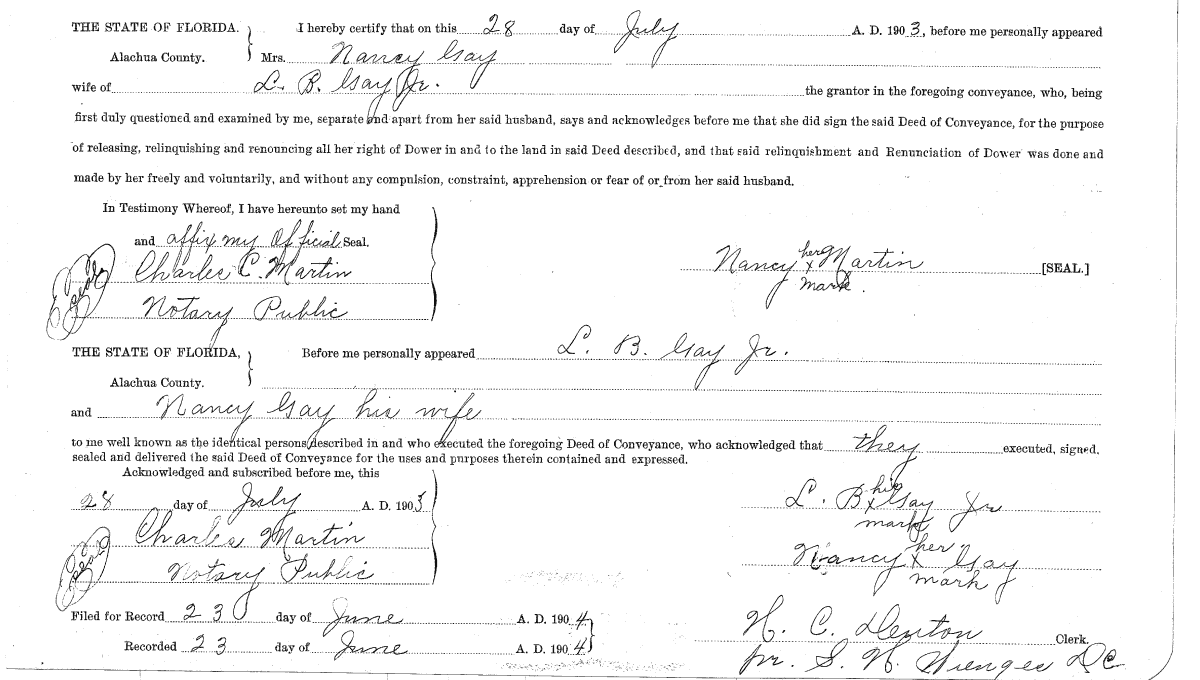 THE STATE OF FLORIDA. } I hereby certify that on this 28 day of July A. D. 1903, before me personally appeared
Alachua County. Mrs. Nancy Gay
wife of L. B. Gay Jr. the grantor in the foregoing conveyance, who, being
first duly questioned and examined by me, separate and apart from her said husband, says and acknowledges before me that she did sign the said Deed of Conveyance, for the purpose
of releasing, relinquishing and renouncing all her right of Dower in and to the land in said Deed described, and that said relinquishment and Renunciation of Dower was done and
made by her freely and voluntarily, and without any compulsion, constraint, apprehension or fear of or from her said husband.
In Testimony Whereof, I have hereunto set my hand
and affix my Official Seal.
Charles C. Martin
Notary Public
Seal
Nancy her x mark Martin [SEAL.]
THE STATE OF FLORIDA, } Before me personally appeared L. B. Gay Jr.
Alachua County.
and Nancy Gay his wife
to me well known as the identical persons described in and who executed the foregoing Deed of Conveyance, who acknowledged that they executed, signed,
sealed and delivered the said Deed of Conveyance for the uses and purposes therein contained and expressed.
Acknowledged and subscribed before me, this
28 day of July A. D. 1903
Charles Martin
Notary Public
Seal
L. B. his x mark Gay Jr
Nancy her x mark Gay
Filed for Record 23 day of June A. D. 1904
Recorded 23 day of June A. D. 1904
H. C. Denton Clerk.
pr. S. H. Wienges DC